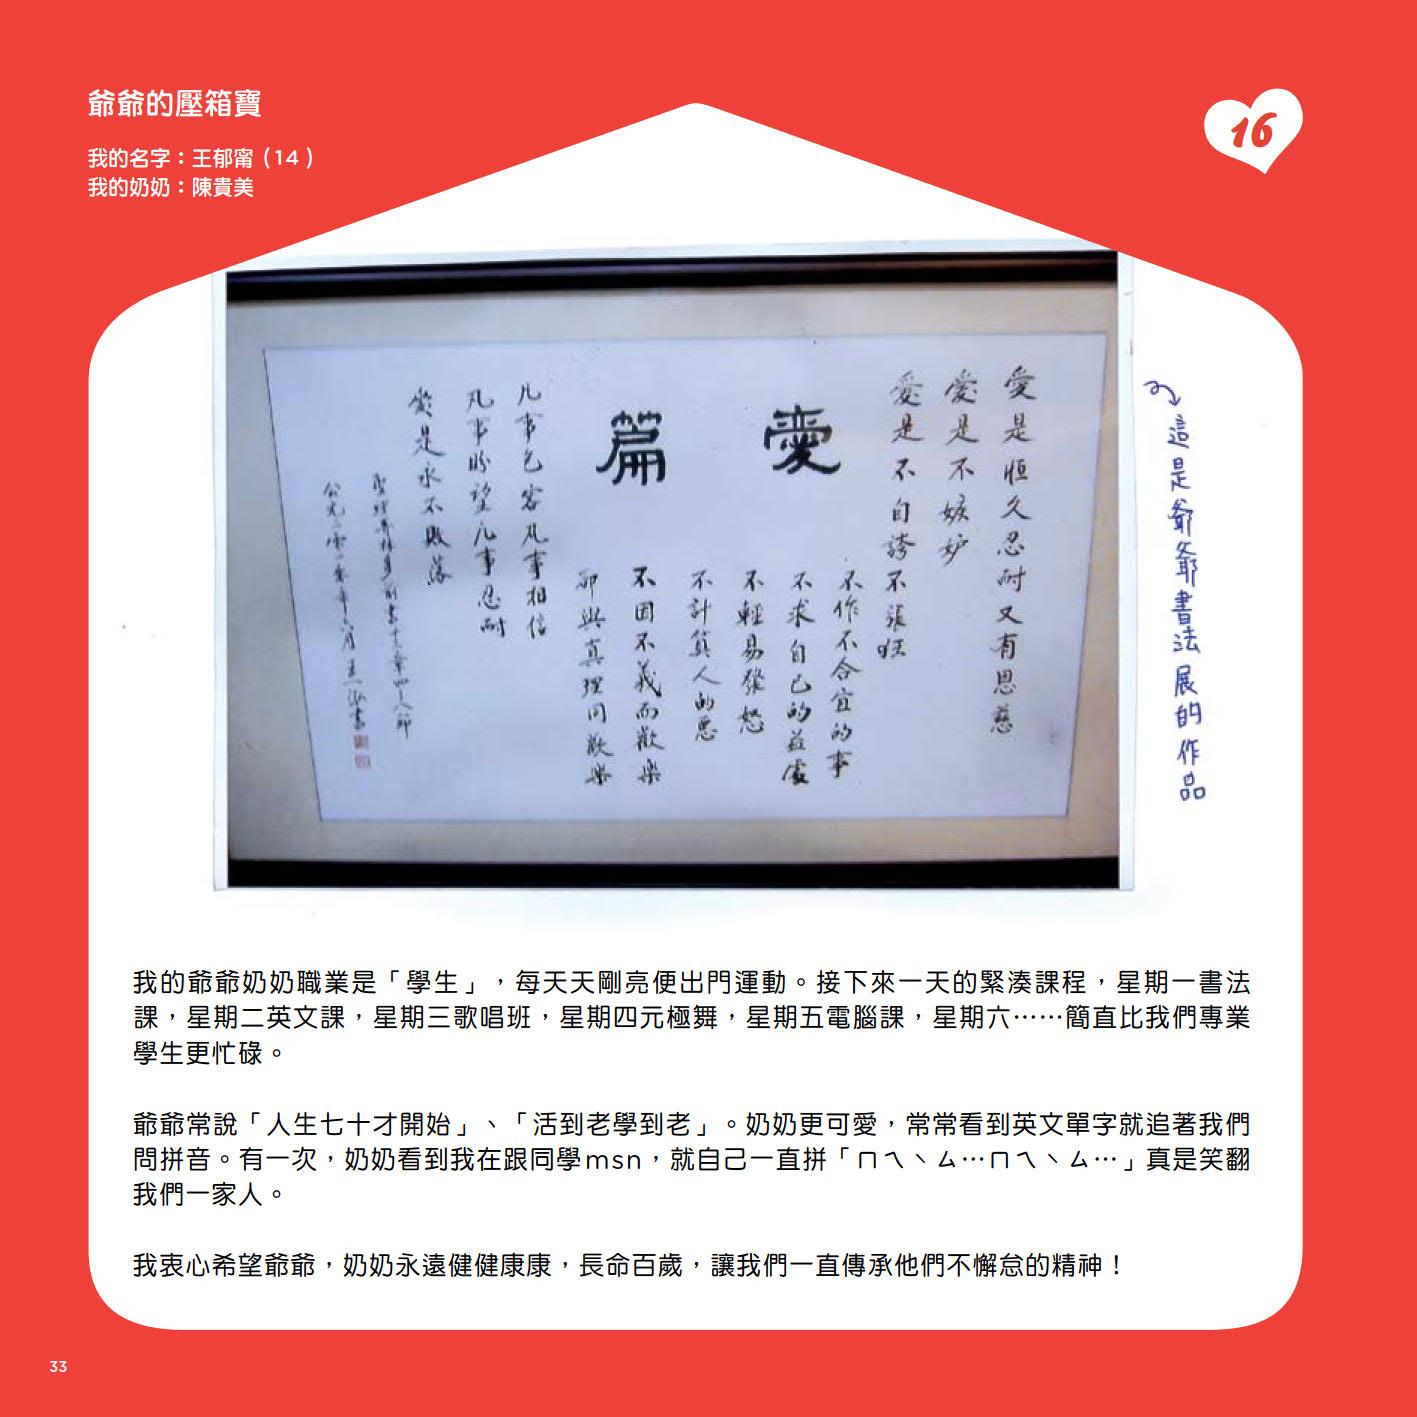 爺爺的壓箱寶
我的名字：王郁甯（14）
我的奶奶：陳貴美
16
愛是恒久忍耐又有恩慈
愛是不嫉妒
愛是不自誇不張狂
不作不合宜的事
不求自己的益處
不輕易發怒
不計算人的惡
不因不義而歡樂
卻與真理同歡樂
愛篇
凡事包容凡事相信
凡事盼望凡事忍耐
愛是永不敗落
聖經哥林多前書十三章四~八節
公元二零一零年六月 王
書
這是爺爺書法展的作品
我的爺爺奶奶職業是「學生」，每天天剛亮便出門運動。接下來一天的緊湊課程，星期一書法
課，星期二英文課，星期三歌唱班，星期四元極舞，星期五電腦課，星期六……簡直比我們專業
學生更忙碌。
爺爺常說「人生七十才開始」、「活到老學到老」。奶奶更可愛，常常看到英文單字就追著我們
問拼音。有一次，奶奶看到我在跟同學msn，就自己一直拼「ㄇㄟヽㄙ…ㄇㄟヽㄙ…」真是笑翻
我們一家人。
我衷心希望爺爺，奶奶永遠健健康康，長命百歲，讓我們一直傳承他們不懈怠的精神！
33